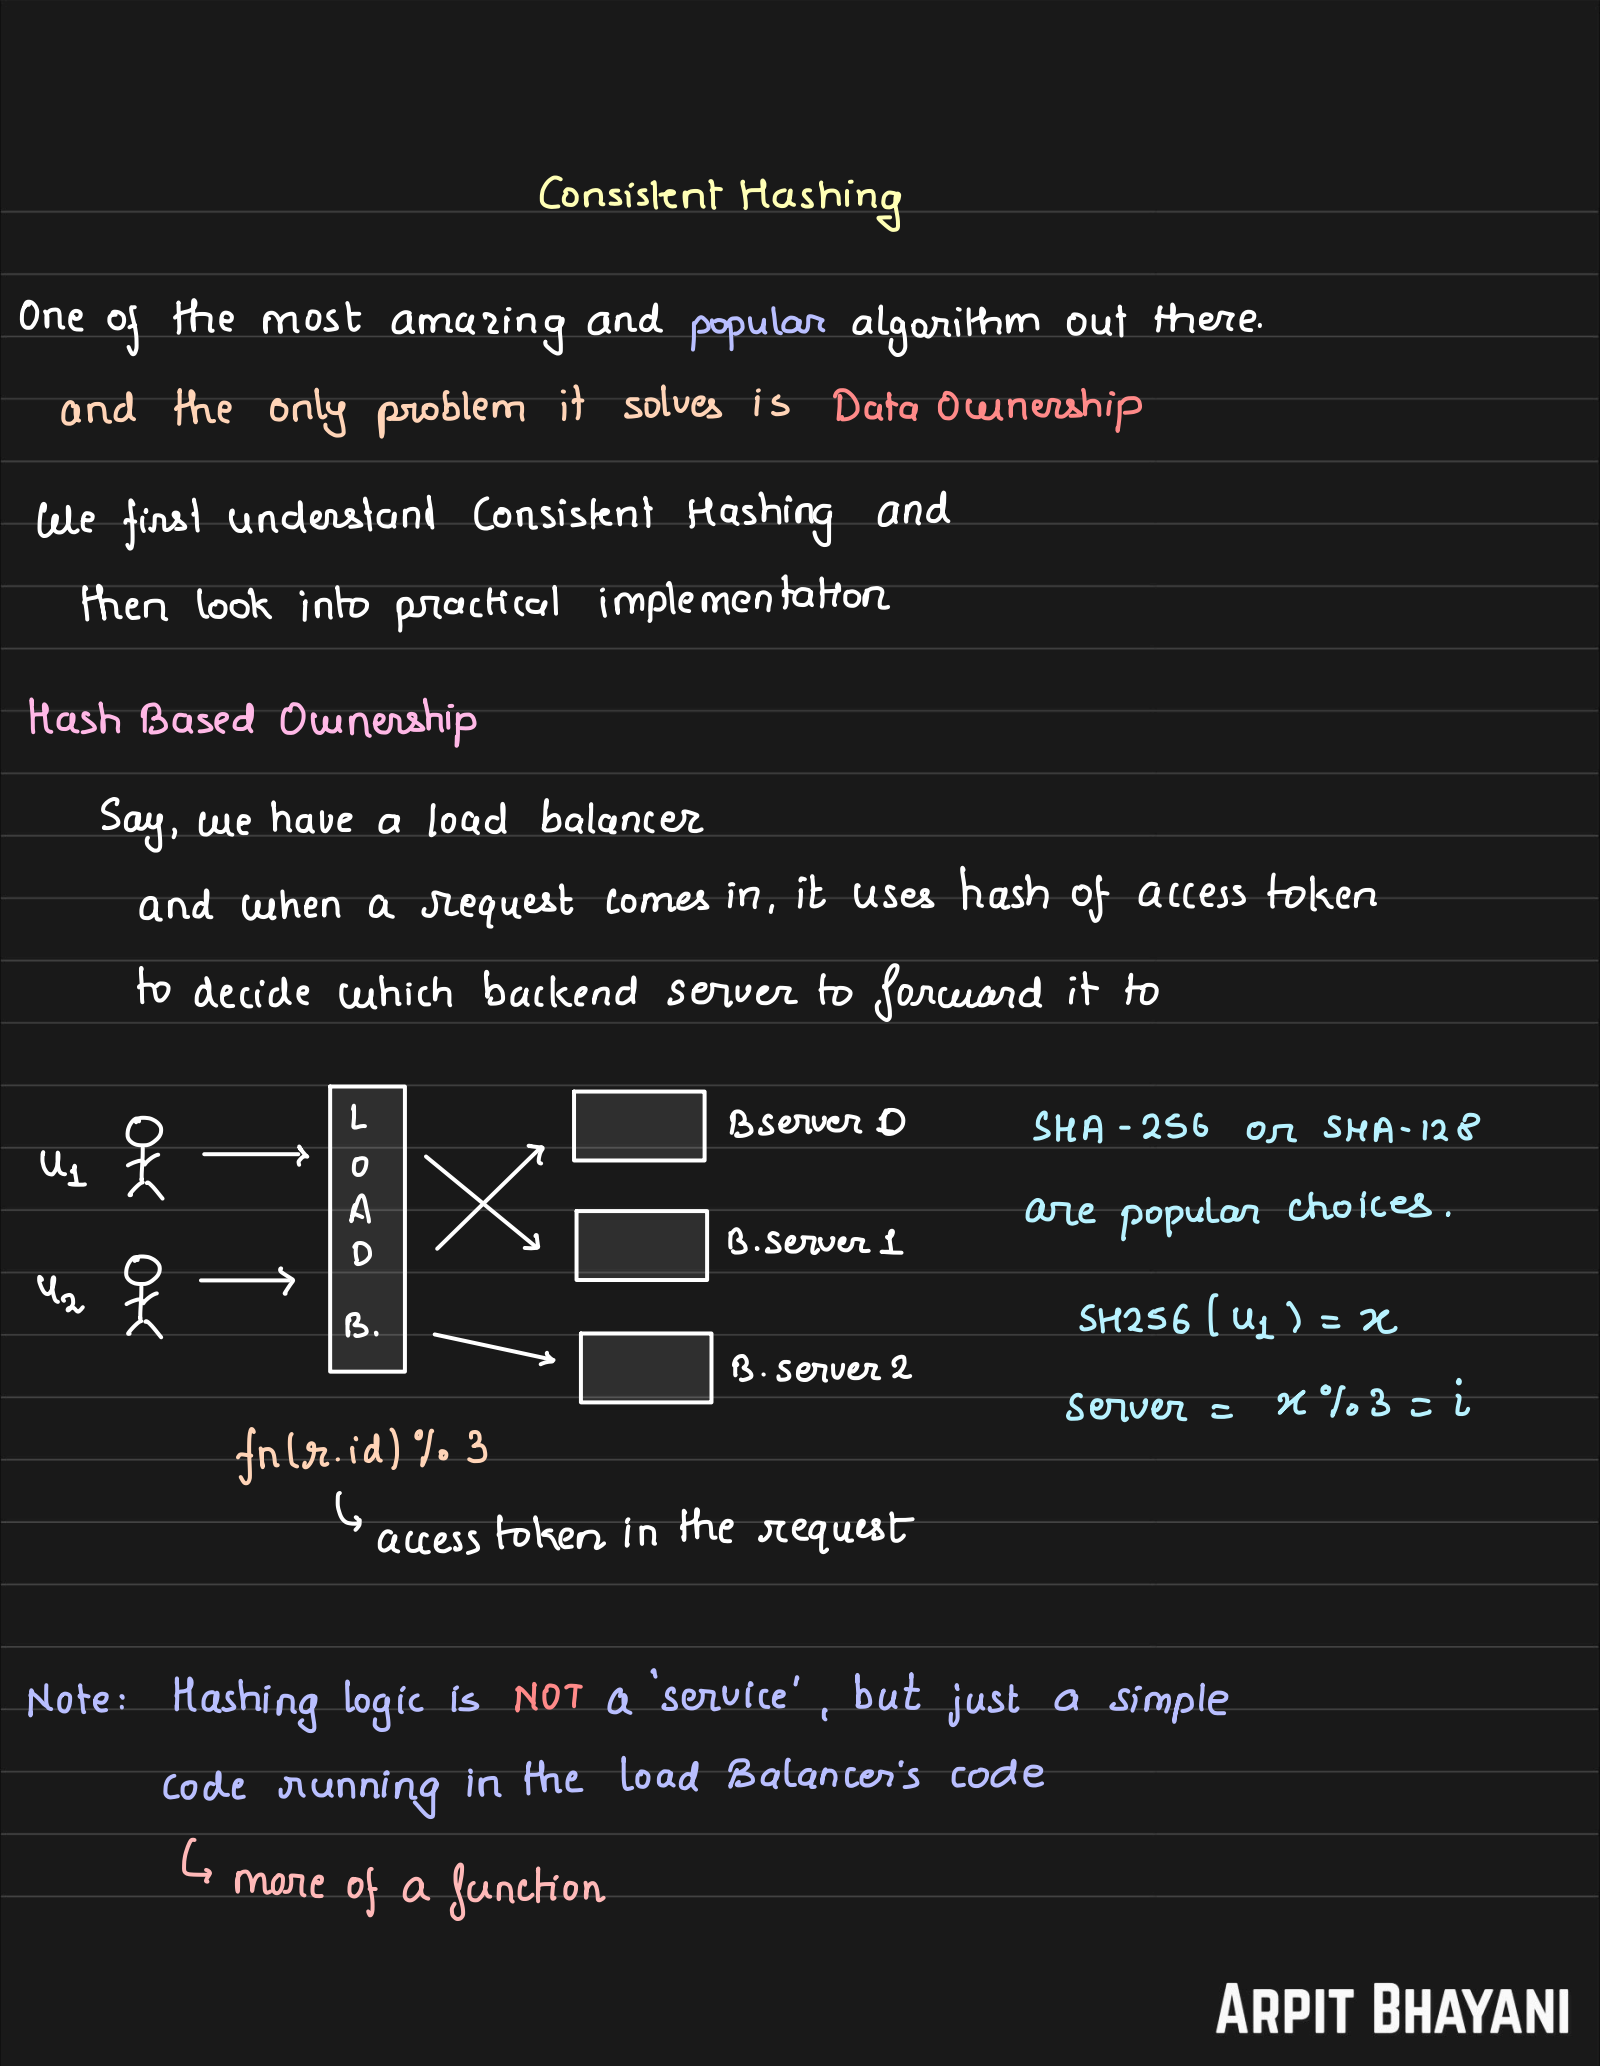 Consistent Hashing
One of the most amazing and popular algorithm out there.
and the only problem it solves is Data Ownership
We first understand Consistent Hashing and
then look into practical implementation
Hash Based Ownership
Say, we have a load balancer
and when a request comes in, it uses hash of access token
to decide which backend server to forward it to
U1
U2
LOAD B.
B server 0
B. server 1
B. server 2
SHA-256 or SHA-128
are popular choices.
SH256(U1) = x
server = x % 3 = i
fn(r.id) % 3
↳ access token in the request
Note: Hashing logic is NOT a 'service', but just a simple
code running in the load Balancer's code
↳ more of a function
ARPIT BHAYANI